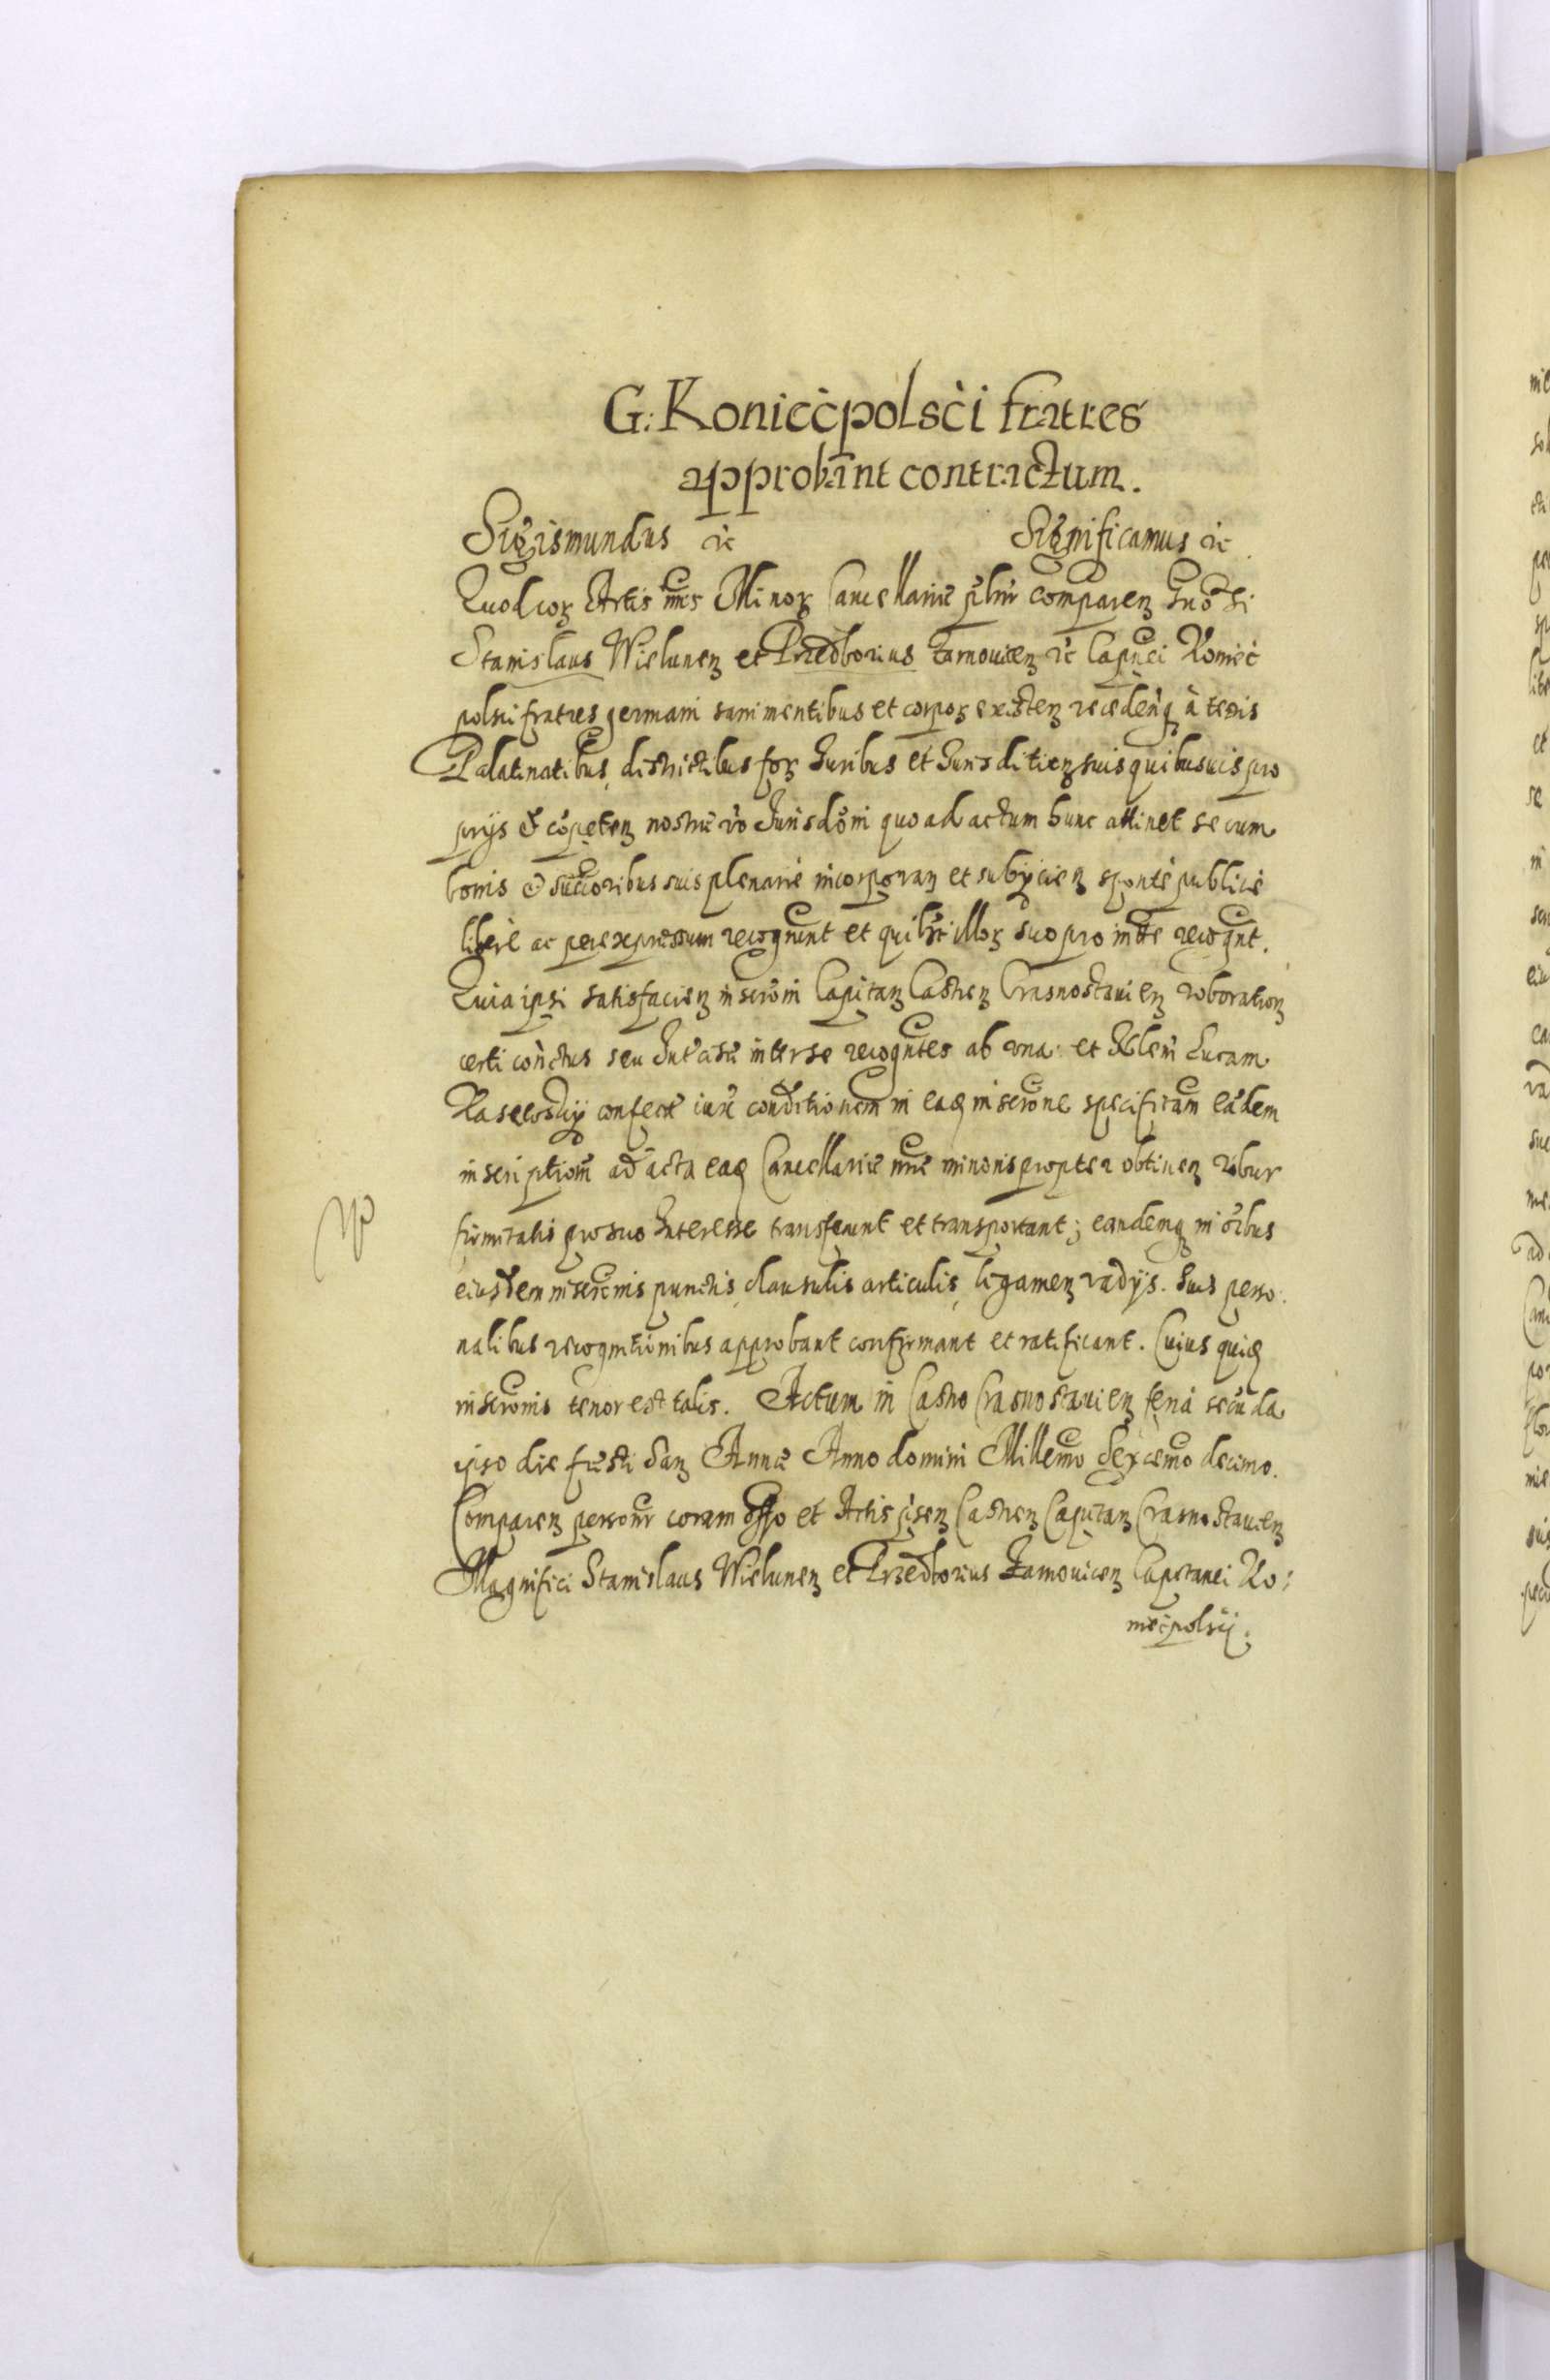 G: Koniecpolsci fratres
approbant contractum.
Sigismundus etc Significamus etc
Quod cor Actis nris Minor Cancellariae plnr comparen Gnosi
Stanislaus Wielunen et Przedborius Zarnovicen etc Capnei Koniec
polsci fratres germani sani mentibus et corpor existen recedenq à terris
Palatinatibus, districtibus for Juribus et Jurisdition suis quibusvis pro
prijs & copeten nostrae vo Jurisdoni quo ad actum hunc attinet se cum
bonis & succoribus suis plenarie incorporan et subijcien sponte publice
libere ac per expressum recognrunt et quilibt illor suo pro intte recognt.
Quia ipsi satisfacien inscroni Capitan Castren Crasnostavien roboration
certi contctus seu Intercisae inter se recognites ab una et Luram
confectae iuxe conditionem in eaq inscrone specificam eadem
inscriptiom ad acta eaq Cancellariae nrae minoris propter obtinen robur
firmitatis pro suo Interesse transferunt et transportant; eandemq in oibus
eiusdem inscronis punctis, clausulis articulis, ligamen vadijs. suis perso:
nalibus recognitionibus approbant confirmant et ratificant. Cuius quiq
inscronis tenor est talis. Actum in Castro Crasnostavien feria secunda
ipso die festi San Annae Anno domini Millemo Sexcemo decimo.
Comparen personr coram offo et Actis psen Castren Capitan Crasnostavien
Magnifici Stanislaus Wielunen et Przedborius Zarnovicen Capitanei Ko:
niecpolscij.